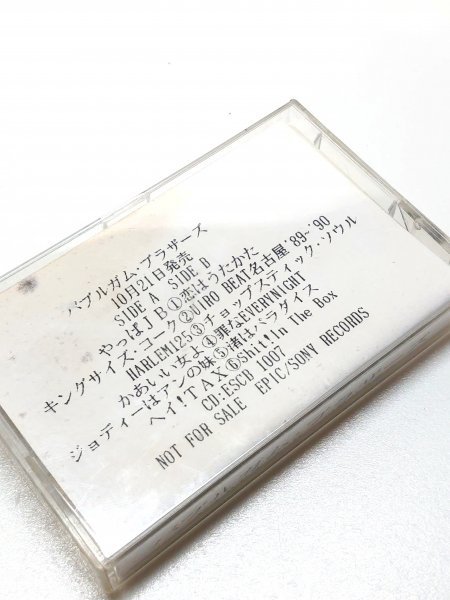 バブルガム・ブラザーズ
10月21日発売
SIDE A SIDE B
やっぱJB①恋はうたかた
キングサイズ・コーク②UIRO BEAT名古屋'89~'90
HARLEM125③チョップスティック・ソウル
かあいい女と④罪なEVERYNIGHT
ジョディーはアンの妹⑤渚はパラダイス
ヘイ!TAX⑥Shit!In the Box
CD:ESCB 1007
NOT FOR SALE EPIC/SONY RECORDS